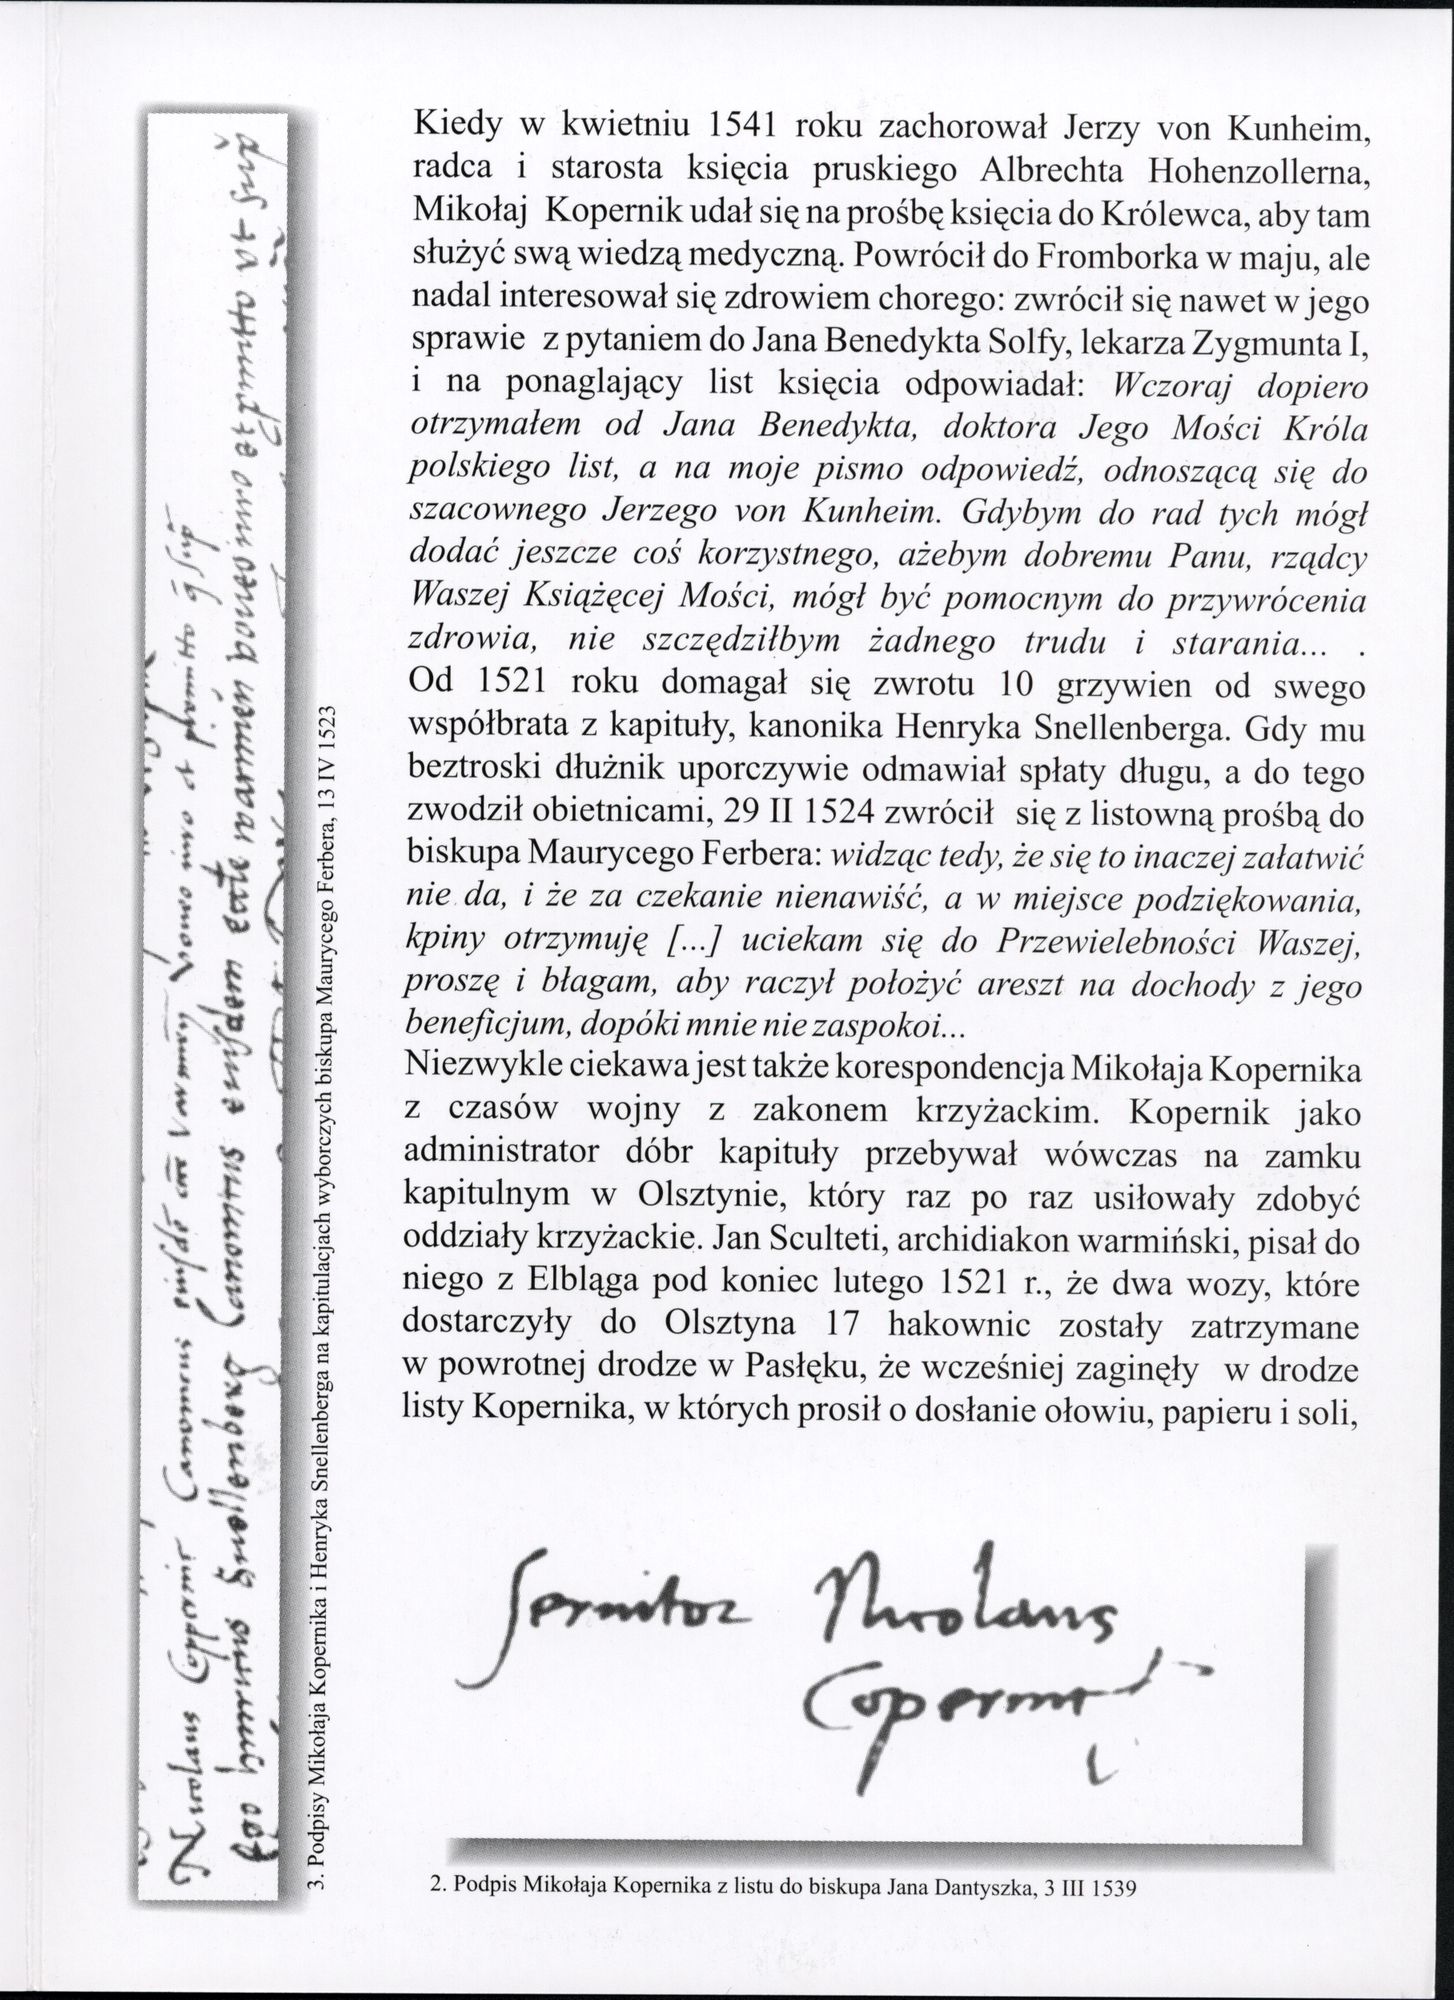 Kiedy w kwietniu 1541 roku zachorował Jerzy von Kunheim,
radca i starosta księcia pruskiego Albrechta Hohenzollerna,
Mikołaj Kopernik udał się na prośbę księcia do Królewca, aby tam
służyć swą wiedzą medyczną. Powrócił do Fromborka w maju, ale
nadal interesował się zdrowiem chorego: zwrócił się nawet w jego
sprawie z pytaniem do Jana Benedykta Solfy, lekarza Zygmunta I,
i na ponaglający list księcia odpowiadał: Wczoraj dopiero
otrzymałem od Jana Benedykta, doktora Jego Mości Króla
polskiego list, a na moje pismo odpowiedź, odnoszącą się do
szacownego Jerzego von Kunheim. Gdybym do rad tych mógł
dodać jeszcze coś korzystnego, ażebym dobremu Panu, rządcy
Waszej Książęcej Mości, mógł być pomocnym do przywrócenia
zdrowia, nie szczędziłbym żadnego trudu i starania... .
Od 1521 roku domagał się zwrotu 10 grzywien od swego
współbrata z kapituły, kanonika Henryka Snellenberga. Gdy mu
beztroski dłużnik uporczywie odmawiał spłaty długu, a do tego
zwodził obietnicami, 29 II 1524 zwrócił się z listowną prośbą do
biskupa Maurycego Ferbera: widząc tedy, że się to inaczej załatwić
nie da, i że za czekanie nienawiść, a w miejsce podziękowania,
kpiny otrzymuję [...] uciekam się do Przewielebności Waszej,
proszę i błagam, aby raczył położyć areszt na dochody z jego
beneficjum, dopóki mnie nie zaspokoi...
Niezwykle ciekawa jest także korespondencja Mikołaja Kopernika
z czasów wojny z zakonem krzyżackim. Kopernik jako
administrator dóbr kapituły przebywał wówczas na zamku
kapitulnym w Olsztynie, który raz po raz usiłowały zdobyć
oddziały krzyżackie. Jan Sculteti, archidiakon warmiński, pisał do
niego z Elbląga pod koniec lutego 1521 r., że dwa wozy, które
dostarczyły do Olsztyna 17 hakownic zostały zatrzymane
w powrotnej drodze w Pasłęku, że wcześniej zaginęły w drodze
listy Kopernika, w których prosił o dosłanie ołowiu, papieru i soli,
Nicolaus
2. Podpis Mikołaja Kopernika z listu do biskupa Jana Dantyszka, 3 III 1539
Nicolaus Coppernic Canonicus
Ego Henricus Snellenberg Canonicus
3. Podpisy Mikołaja Kopernika i Henryka Snellenberga na kapitulacjach wyborczych biskupa Maurycego Ferbera, 13 IV 1523